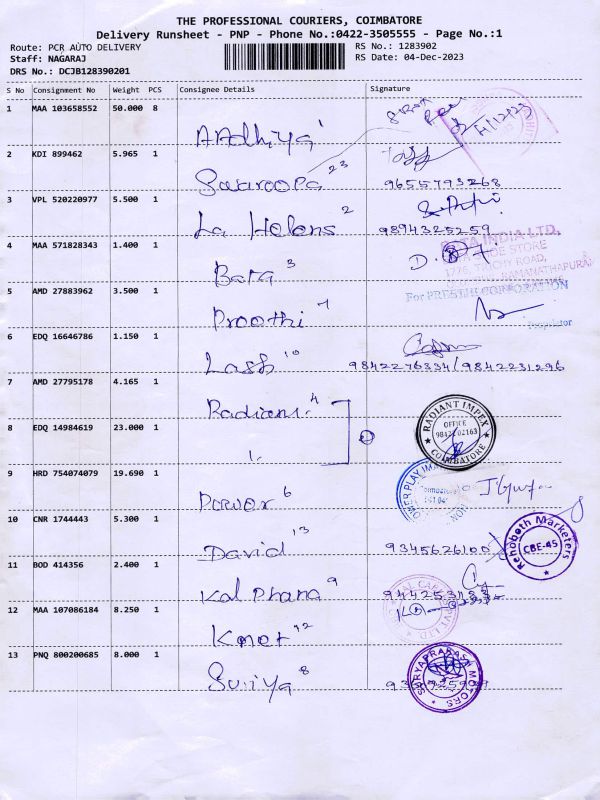 THE PROFESSIONAL COURIERS, COIMBATORE
Delivery Runsheet - PNP - Phone No.:0422-3505555 - Page No.:1
Route: PCR AUTO DELIVERY
RS No.: 1283902
Staff: NAGARAJ
RS Date: 04-Dec-2023
DRS No.: DCJB128390201
S No Consignment No Weight PCS Consignee Details Signature
1 MAA 103658552 50.000 8
Aradhiya 1
2 KDI 899462 5.965 1
Swaroopa 23 9655793268
3 VPL 520220977 5.500 1
La Helens 2 9894325259
4 MAA 571828343 1.400 1
BATA INDIA LTD.
Bata 3
1776, TRICHY ROAD,
RAMANATHAPURAM
5 AMD 27883962 3.500 1
For PREETHI CORPORATION
Preethi 7
Proprietor
6 EDQ 16646786 1.150 1
Lass 10 9842276334/9842231296
7 AMD 27795178 4.165 1
Radiant 4
8 EDQ 14984619 23.000 1
RADIANT IMPEX
OFFICE
COIMBATORE
9 HRD 754074079 19.690 1
Power 6
10 CNR 1744443 5.300 1
David 13 9345626100
Rehoboth Marketers
CBE-45
11 BOD 414356 2.400 1
Kalpana 9
12 MAA 107086184 8.250 1
12
13 PNQ 800200685 8.000 1
Suriya 8
SURYAPRABHA MOTORS